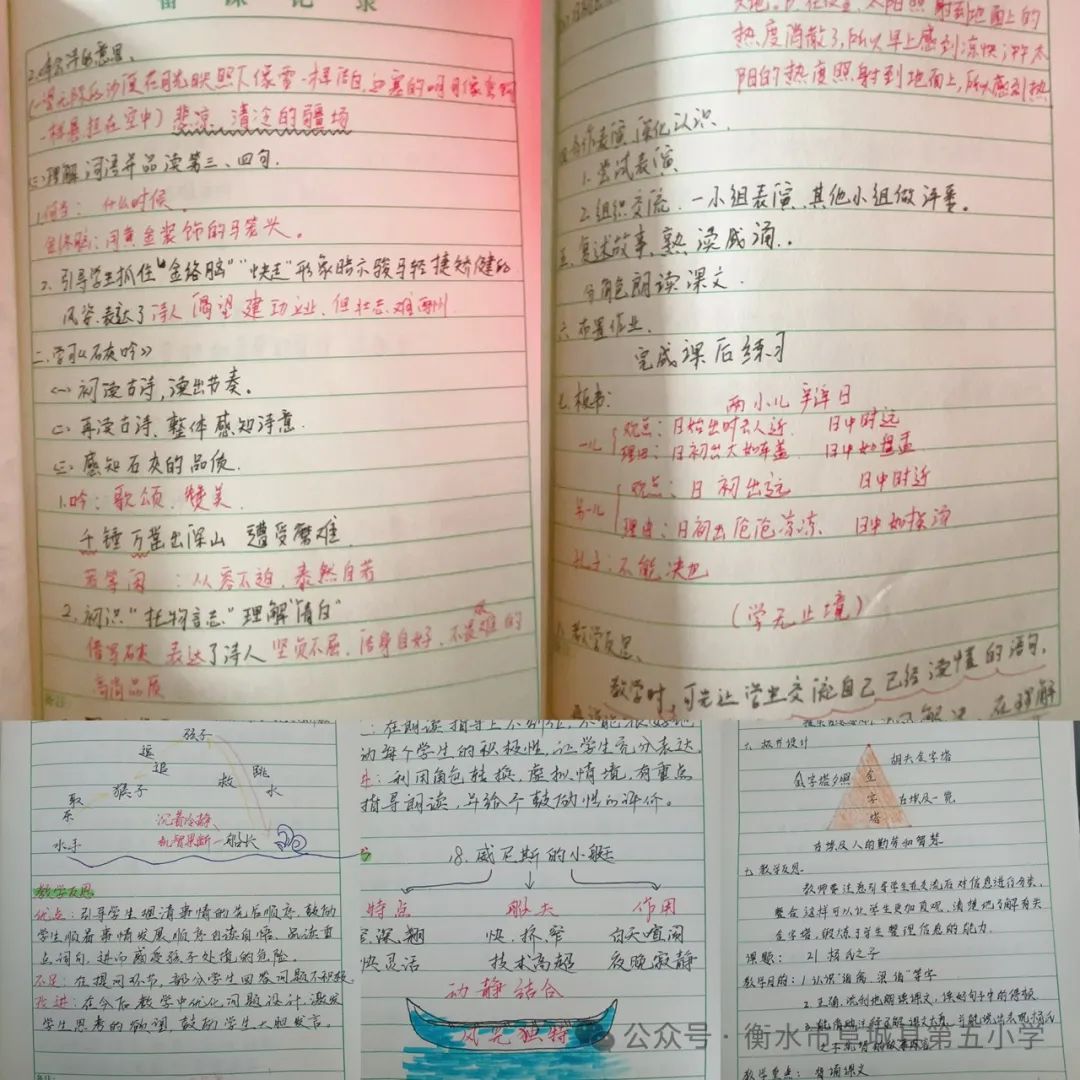 备课记录
2.体会诗的意思。
(一望无际的沙漠在月光映照下像雪一样洁白,边塞的明月像弯钩
一样悬挂在空中)悲凉、清冷的疆场
(三)理解词语并品读第三、四句.
1.何当:什么时候.
金络脑:用黄金装饰的马笼头。
2.引导学生抓住“金络脑”“快走”形象暗示骏马轻捷矫健的
风姿.表达了诗人渴望建功立业、但壮志难酬.
二.学习《石灰吟》
(一)初读古诗,读出节奏。
(二)再读古诗、整体感知诗意.
(三)感知石灰的品质.
1.吟:歌颂.赞美.
千锤万凿出深山 遭受磨难.
若等闲:从容不迫.泰然自若
2.初识“托物言志”理解“清白”
借写石灰 表达了诗人坚贞不屈.洁身自好、不畏艰难的
高尚品质
备注
太阳照射到地面上的
热度消散了,所以早上感到凉快;中午太
阳的热度照射到地面上,所以感到热
四.合作表演,深化认识.
1.尝试表演
2.组织交流.一小组表演,其他小组做评委。
五.复述故事,熟读成诵..
分角色朗读课文.
六.布置作业.
完成课后练习
七.板书:
两小儿辩日
一儿
观点:日始出时去人近. 日中时远
理由:日初出大如车盖. 日中如盘盂
另一儿
观点:日初出远 日中时近
理由:日初出沧沧凉凉. 日中如探汤
孔子:不能决也
(学无止境)
教学反思.
教学时,可先让学生交流自己已经读懂的语句,
在理解
孩子
逗
追
猴子
取乐
水手
救
跳水
沉着冷静、
机智果断—船长
教学反思
优点:引导学生理清事情的先后顺序,鼓励
学生顺着事情发展顺序自读自悟、品读重
点词句,进而感受孩子处境的危险。
不足:在提问环节,部分学生回答问题不积极
改进:在今后教学中优化问题设计,激发
学生思考的欲望,鼓励学生大胆发言。
:在朗读指导上不到位,不能很好地
动每个学生的积极性,让学生充分表达.
:利用角色转换,虚拟情境,有重点
指导朗读,并给予鼓励性的评价。
18.威尼斯的小艇
特点 船夫 作用
深、翘 快、挤、窄 白天喧闹
快灵活 技术高超 夜晚寂静
动静结合
风光独特
六、板书设计
金字塔夕照
金字塔
胡夫金字塔
古埃及一览
古埃及人的勤劳和智慧
七.教学反思
教师要注意引导学生在交流后对信息进行分类,
整合这样可以让学生更加直观、清楚地了解有关
金字塔,锻炼了学生整理信息的能力.
课题: 21 杨氏之子
教学目的:1.认识“诣禽、梁诣”等字
2.正确、流利地朗读课文,读好句子中的停顿
教学重点:背诵课文
公众号·衡水市阜城县第五小学